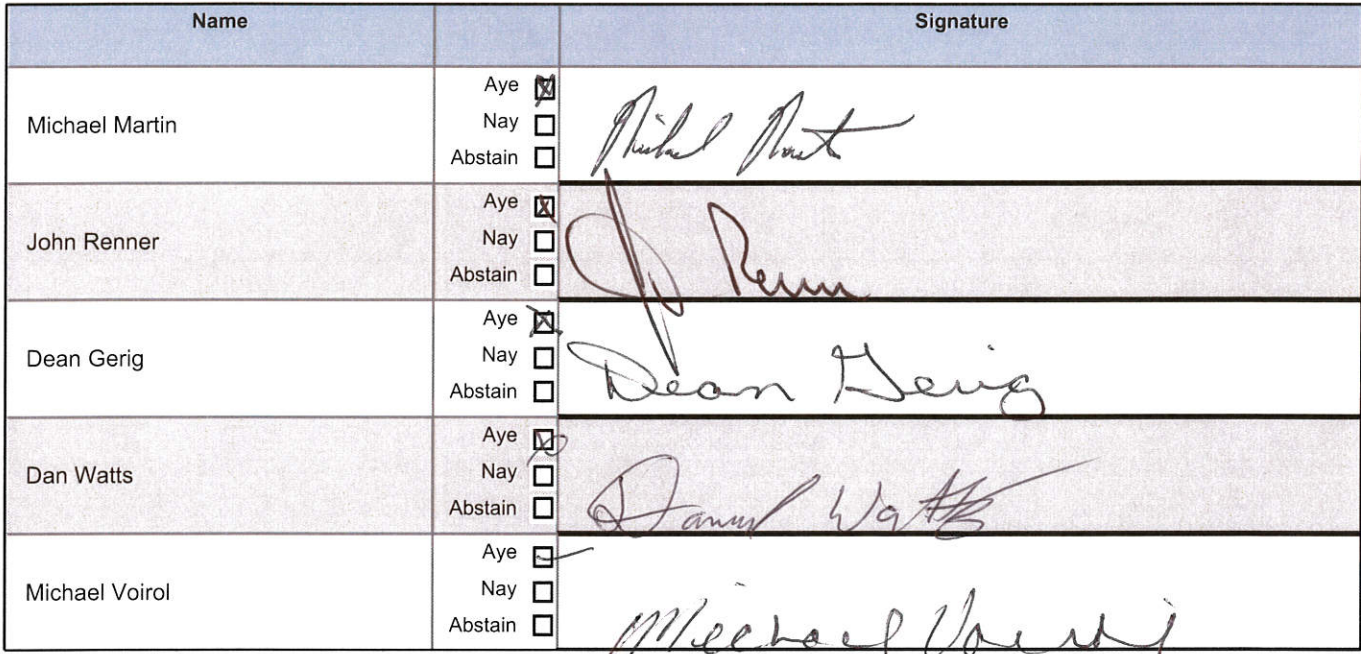 Name Signature
Michael Martin
Aye ☒
Nay ☐
Abstain ☐
Michael Martin
John Renner
Aye ☒
Nay ☐
Abstain ☐
Renner
Dean Gerig
Aye ☒
Nay ☐
Abstain ☐
Dean Gerig
Dan Watts
Aye ☒
Nay ☐
Abstain ☐
Daniel Watts
Michael Voirol
Aye ☑
Nay ☐
Abstain ☐
Michael Voirol